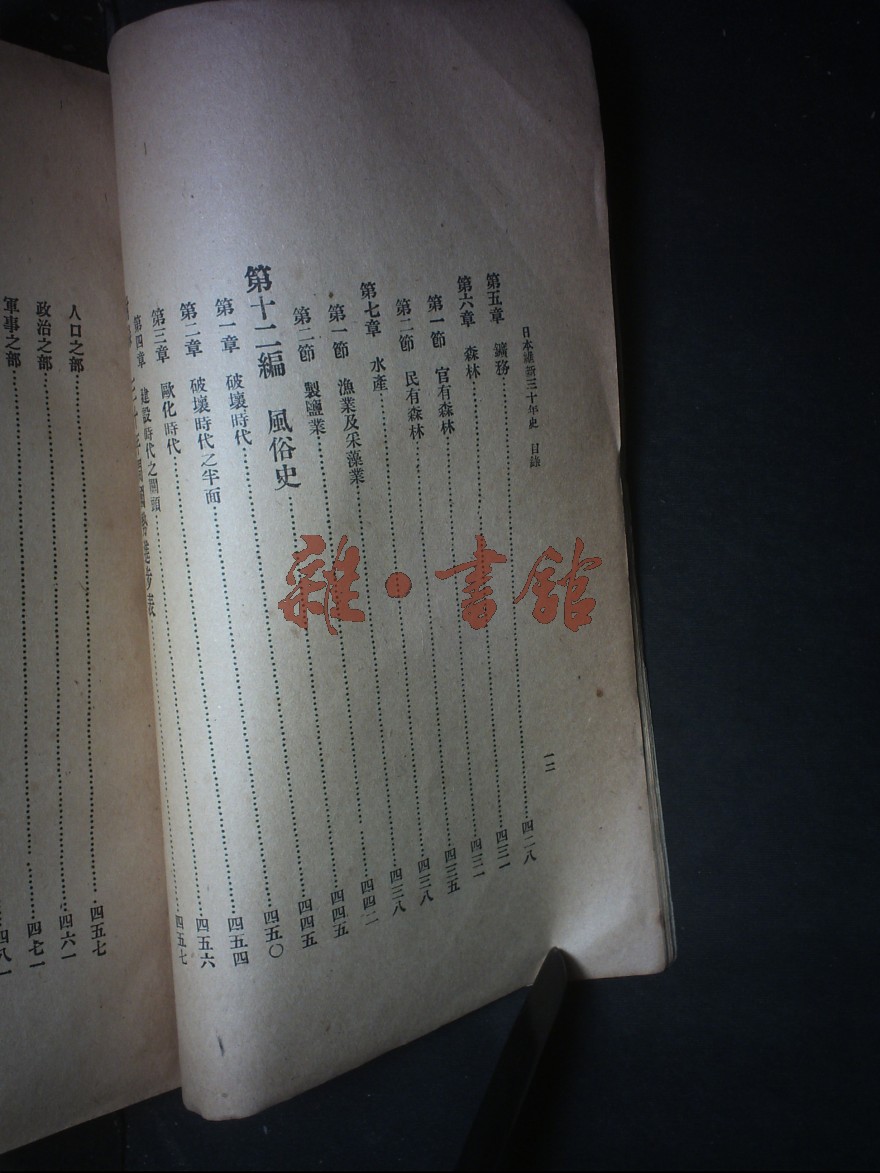 日本維新三十年史 目錄 一二
第五章 鑛務……四二八
第六章 森林……四三一
第一節 官有森林……四三一
第二節 民有森林……四三五
第七章 水產……四三八
第一節 漁業及采藻業……四三八
第二節 製鹽業……四四二
第十二編 風俗史……四四五
第一章 破壞時代……四四五
第二章 破壞時代之半面……四五〇
第三章 歐化時代……四五四
第四章 建設時代之關頭……四五六
十年間國勢進步……四五七
人口之部……四五七
政治之部……四六一
軍事之部……四七一
四八一
雜·書館